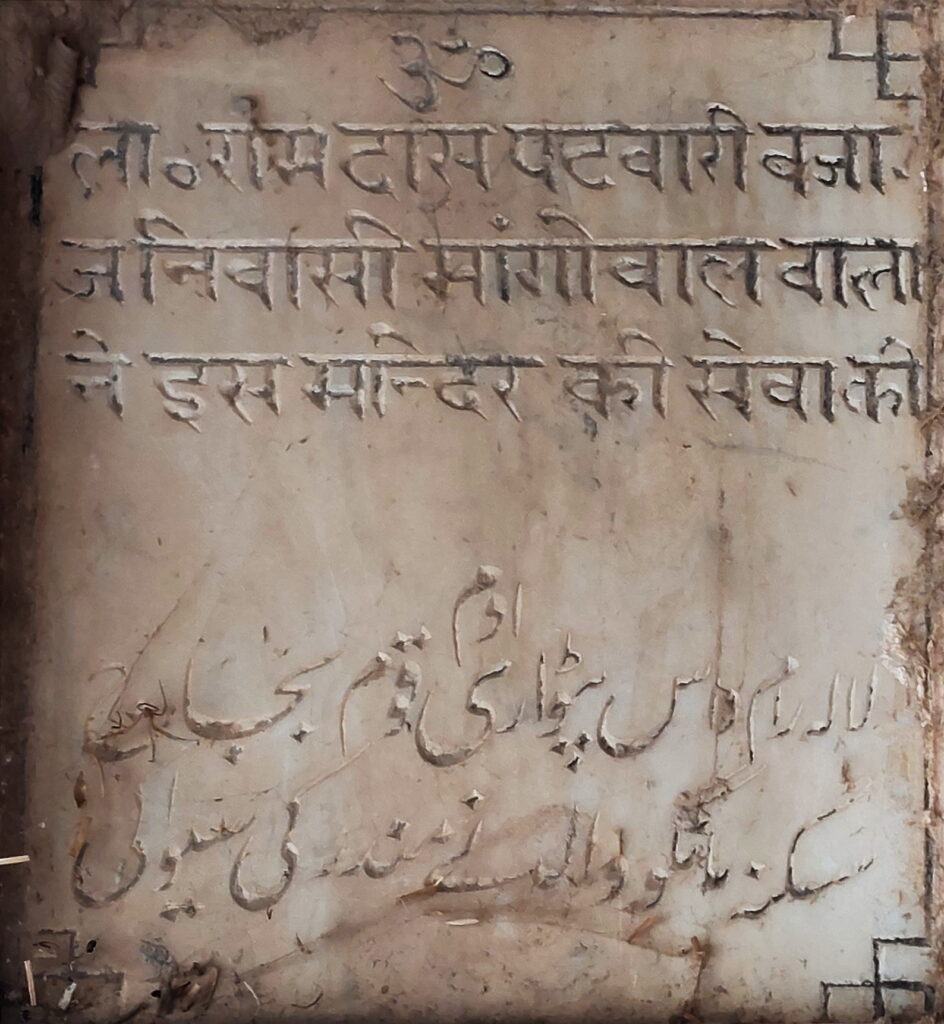 ॐ
ला॰ राम दास पटवारी बजा-
ज निवासी मांगोवाल वाला
ने इस मन्दिर की सेवा की
اوم
لالہ رام داس پٹواری قوم
سکنہ مانگووال نے مندر کی سیوا کی